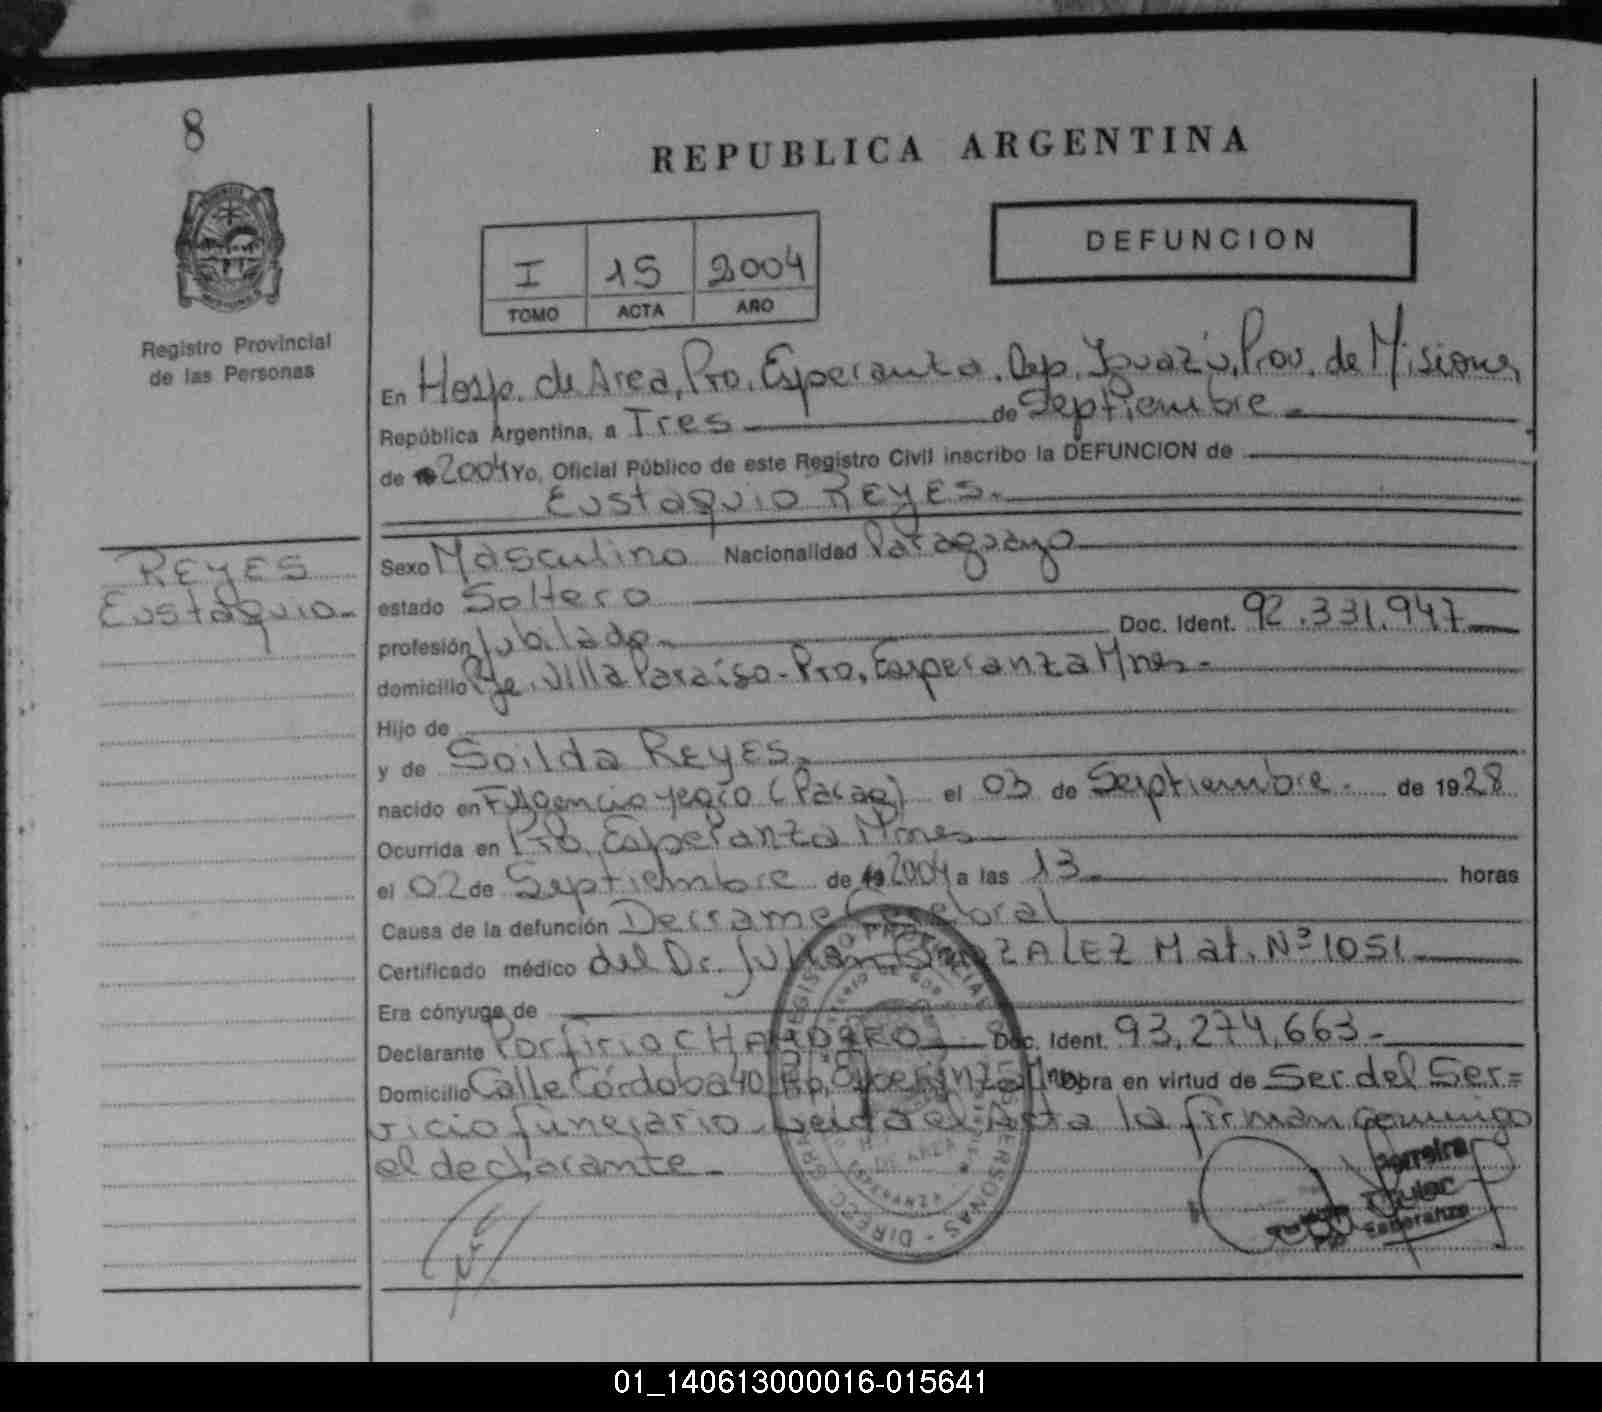 8
REPUBLICA ARGENTINA
DEFUNCION
I 15 2004
TOMO ACTA AÑO
Registro Provincial
de las Personas
En Hosp. de Area, Pto. Esperanza. Dep. Iguazú, Prov. de Misiones
República Argentina, a Tres de Septiembre
de 2004 Yo, Oficial Público de este Registro Civil inscribo la DEFUNCION de
Eustaquio REYES.
REYES
Eustaquio
Sexo Masculino Nacionalidad Paraguayo
estado Soltero
profesión Jubilado Doc. Ident. 92.331.947
domicilio Pje. Villa Paraíso - Pto. Esperanza Mnes.
Hijo de
y de Soilda REYES.
nacido en Fulgencio yegro (Parag) el 03 de Septiembre de 1928
Ocurrida en Pto. Esperanza Mnes
el 02 de Septiembre de 2004 a las 13 horas
Causa de la defunción Derrame Cerebral
Certificado médico del Dr. Julian GONZALEZ Mat. Nº 1051
Era cónyuge de
Declarante Porfirio Doc. Ident. 93,274,663
Domicilio Calle Córdoba 40 Pto. Esperanza Mnes Obra en virtud de Ser del Ser=
vicio funerario. Leída el Acta la firman conmigo
el declarante
REGISTRO PROVINCIAL PERSONAS - DIRECC
DE AREA
ESPERANZA
Ferreira
Titular
Esperanza
01_140613000016-015641